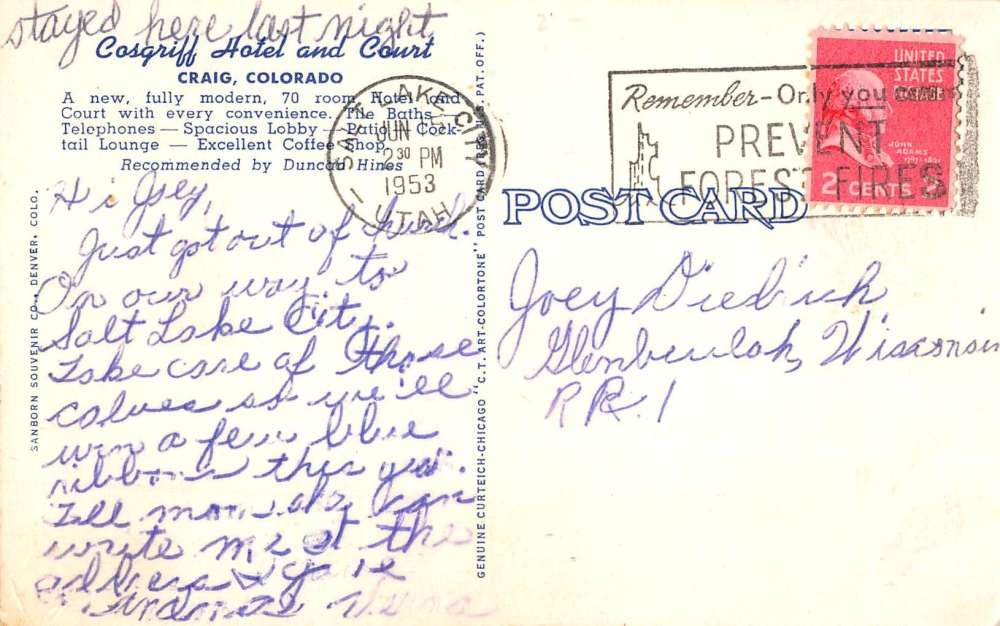 stayed here last night
Cosgriff Hotel and Court
CRAIG, COLORADO
A new, fully modern, 70 room Hotel and
Court with every convenience. Tile Baths
Telephones — Spacious Lobby — Patio — Cock-
tail Lounge — Excellent Coffee Shop.
Recommended by Duncan Hines
Hi Joey,
Just got out of church.
On our way to
Salt Lake City.
Take care of those
calves so we'll
win a few blue
ribbons this year.
Tell mom she can
write me at the
address
SANBORN SOUVENIR CO., DENVER, COLO.
GENUINE CURTEICH-CHICAGO "C.T. ART-COLORTONE" POST CARD (REG. U.S. PAT. OFF.)
SALT LAKE CITY
JUN
2 30 PM
1953
UTAH
Remember - Only you can
PREVENT
FOREST FIRES
UNITED
STATES
POSTAGE
JOHN
ADAMS
1797-1801
2 CENTS 2
POST CARD
Joey Diedrich
Glenbeulah, Wisconsin
R R. 1